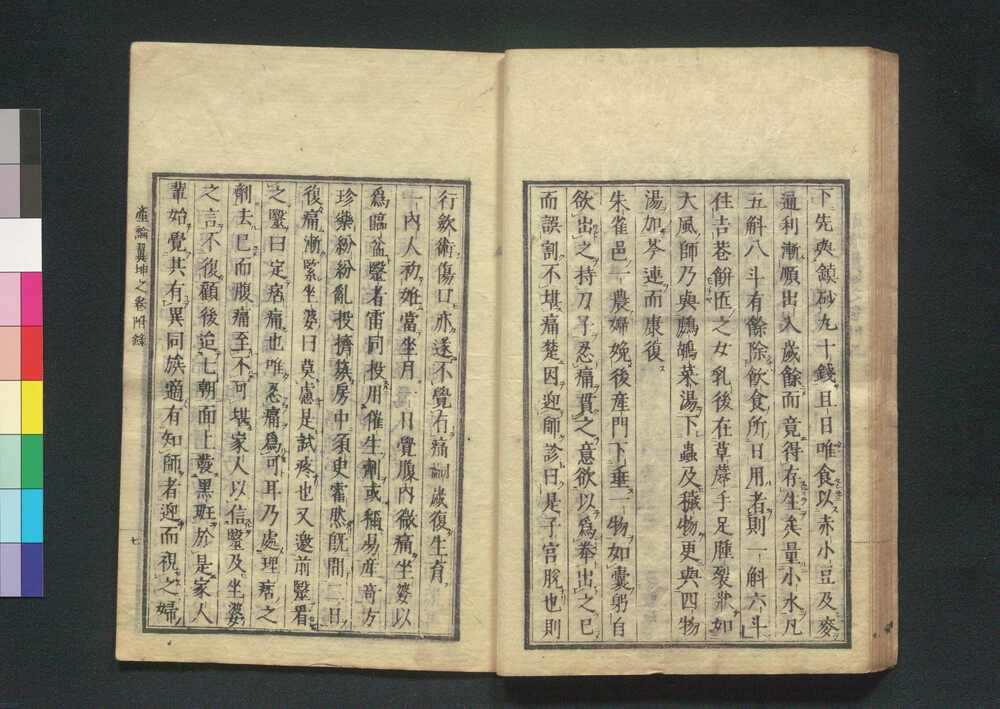 下先與鍼砂九十錢且日唯食以赤小豆及麥
逼利漸順出入歲餘而竟得存生矣量小水凡
五斛八斗有餘除飲食所日用者則一斛六斗
住吉巷餅匠之女乳後在草蓐手足腫裂狀如
大風師乃與鷓鴣菜湯下蟲及穢物更與四物
湯加芩連而康復
朱雀邑一農婦娩後産門下垂一物如囊躬自
欲出之持刀子忍痛貫之意欲以爲拳出之已
而誤割不堪痛楚因迎師診曰是子宮脫也則
行斂術傷口亦遂不覺有痛嗣歲復生育
一內人初姙當坐月一日覺腹內微痛坐婆以
爲臨盆醫者雷同投用催生劑或稱易産奇方
珍藥紛紛亂投擠簇房中須臾霍然旣間二日
復痛漸緊坐婆曰莫慮是試疼也又邀前醫看
之醫曰定痞痛也唯忍痛爲可耳乃處理痞之
劑去已而腹痛至不可堪家人以信醫及坐婆
之言不復顧後迨七朝面上發黑斑於是家人
輩始覺其有異同族適有知師者迎而視之婦
產論翼坤之卷附錄
七